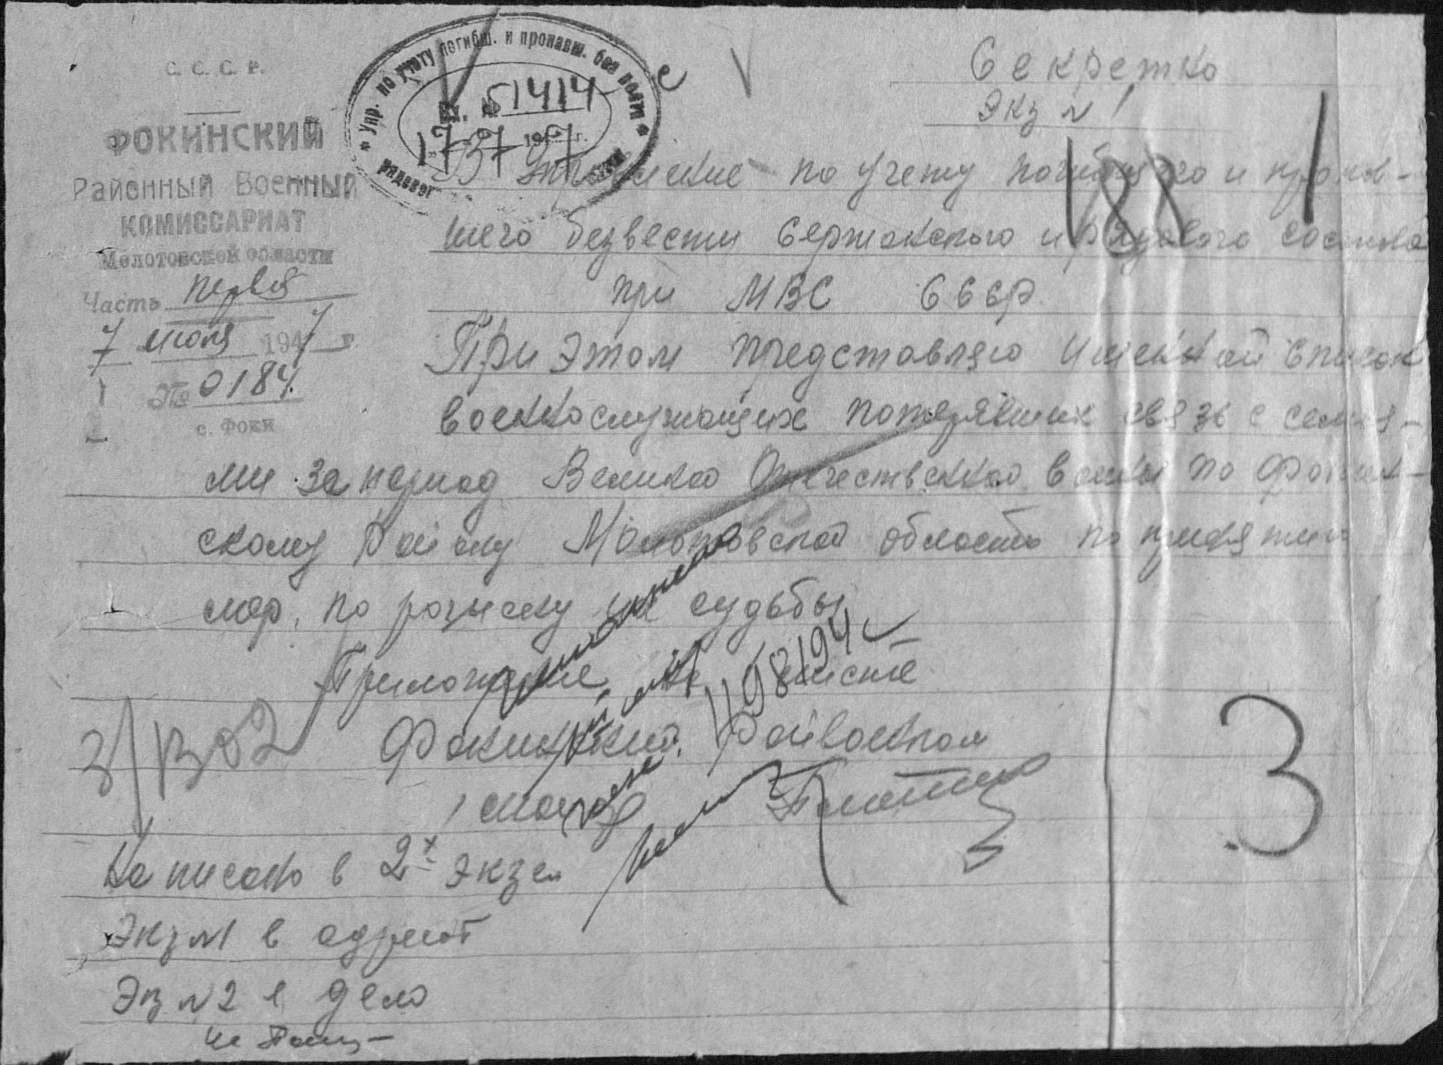 Секретно
Экз N 1
С. С. С. Р.
ФОКИНСКИЙ
Районный Военный
КОМИССАРИАТ
Молотовской области
Часть первая
7 июля 1947 г
№ 0184
с. Фоки
Упр. по учету погибш. и пропавш. без вести
Вх. № 51414
188
1
В Управление по учету погибшего и пропав-
шего безвести сержанского и рядового состава
при МВС СССР
При этом представляю именной список
военнослужащих потерявших связь с семья-
ми за период Великой Отечественной войны по Фокин-
скому Району Молотовской области по принятию
мер, по розыску их судьбы
Приложение на листе
498194
Фокинский Райвоенком
3
Написано в 2х экзем
Экз N1 в адрест
Эз N2 в дело